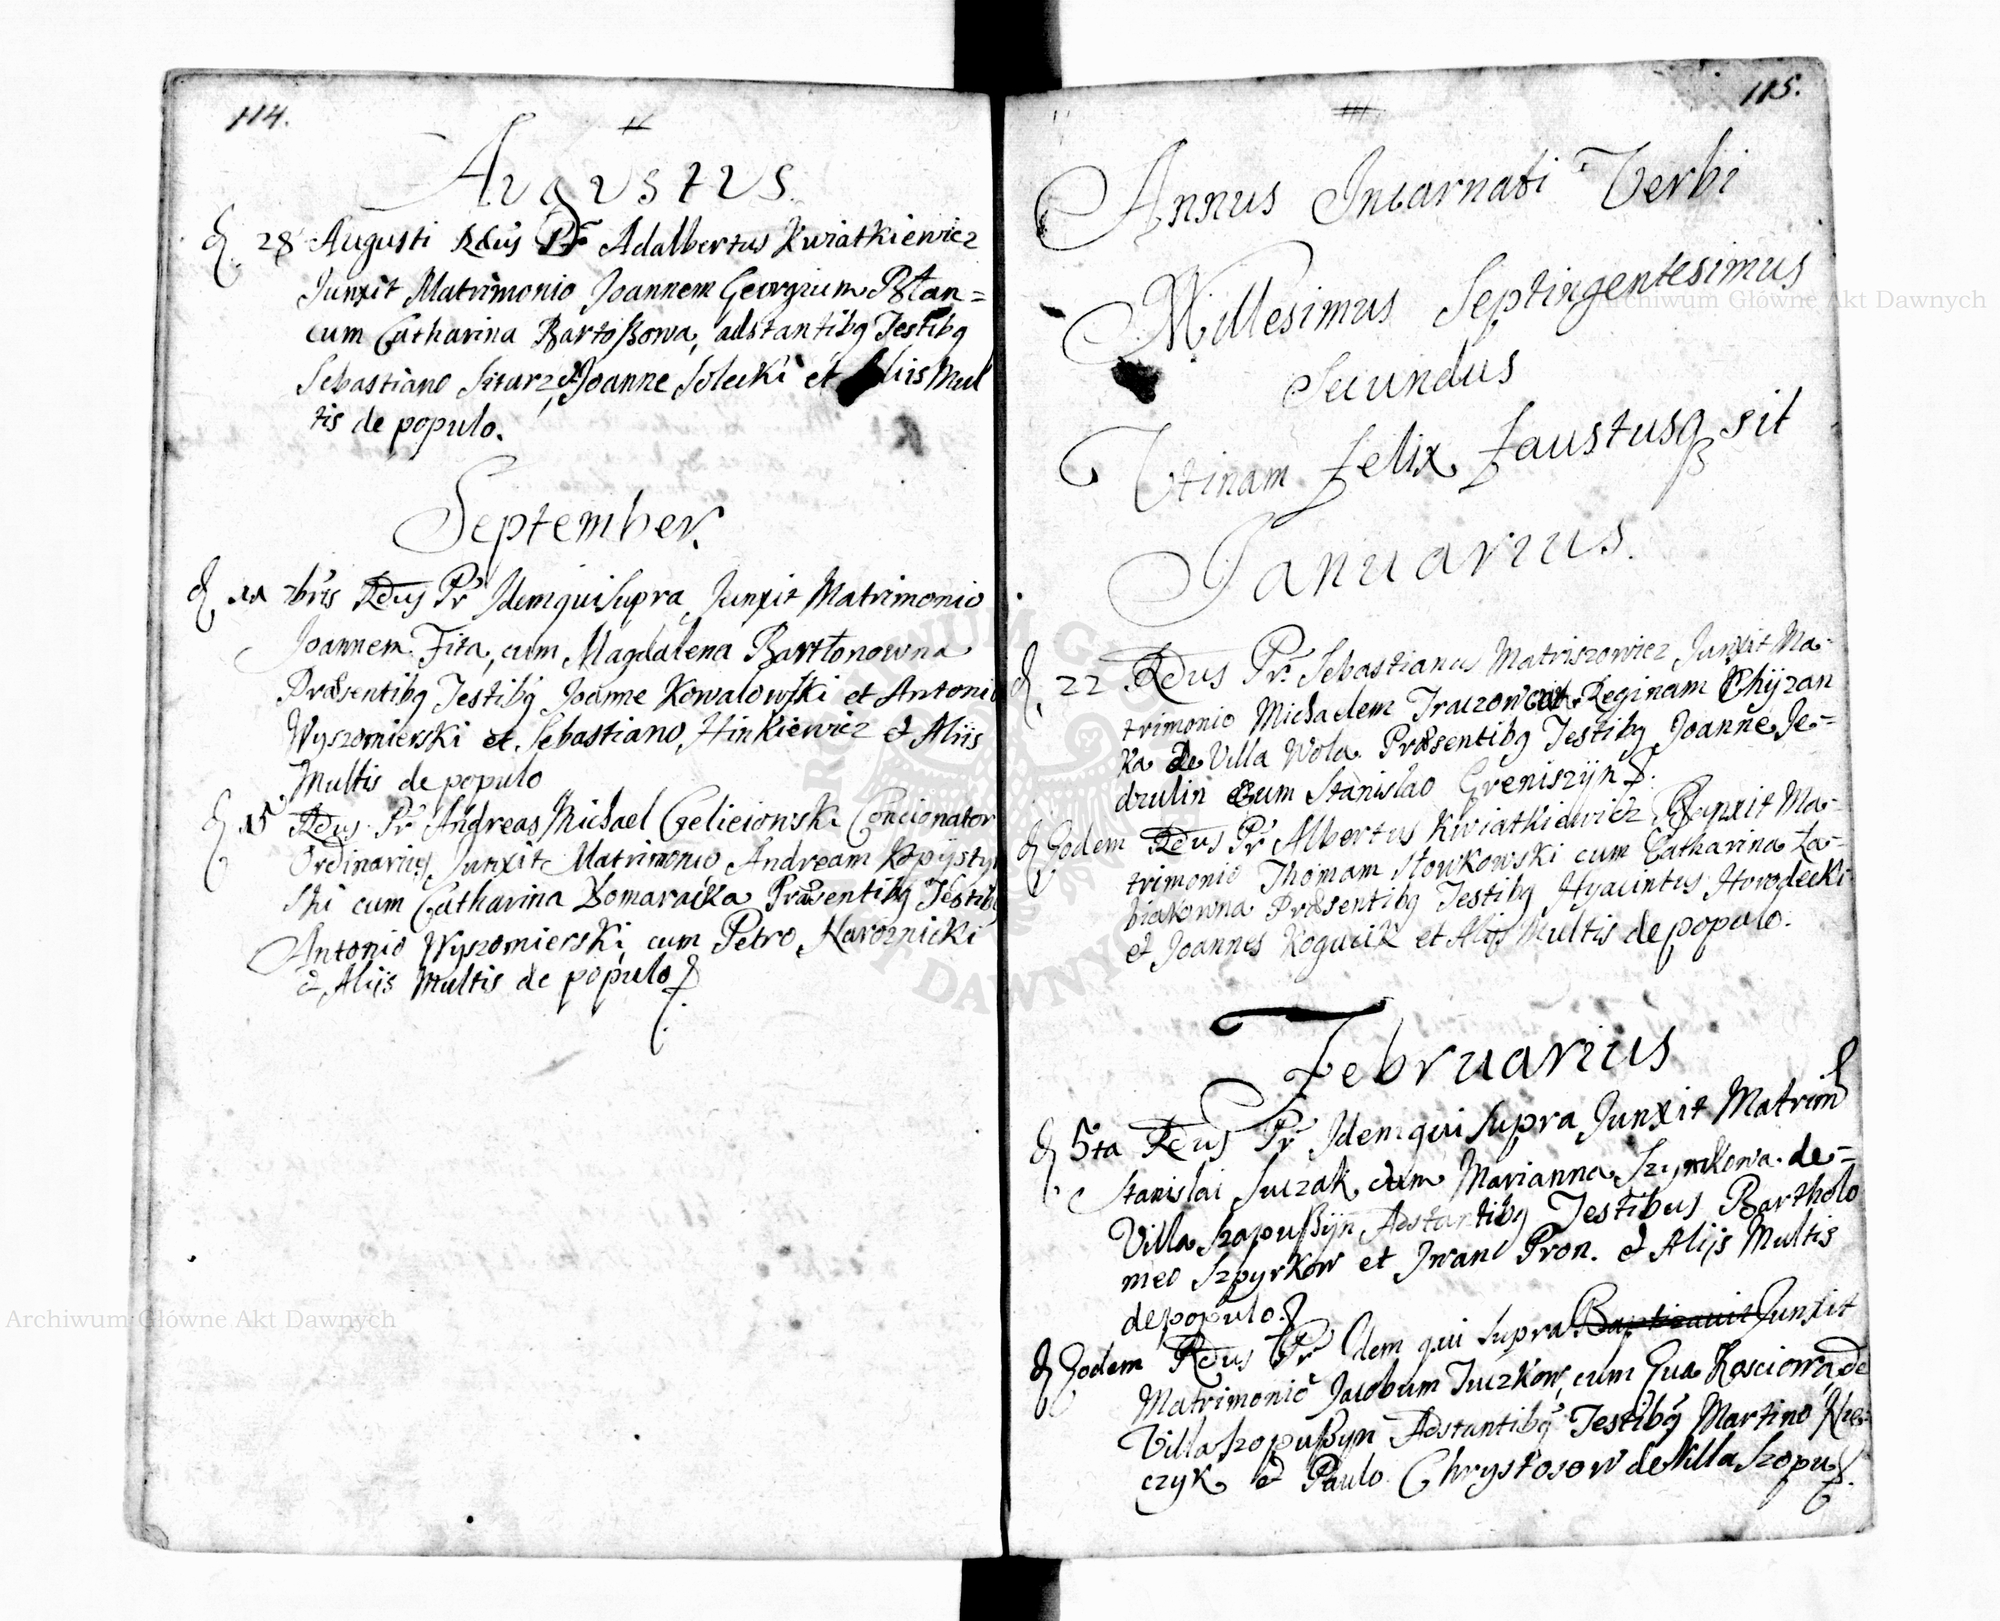 114.
Augustus.
28 Augusti Rdus Pr Adalbertus Kwiatkiewicz
Junxit Matrimonio Joannem Georgium
cum Catharina Bartoßowa, adstantibq Testibq
Sebastiano Siturz, Joanne Solecki et Aliis Mul
tis de populo.
September.
11 7bris Rdus Pr Idem qui Supra Junxit Matrimonio
Joannem Fita, cum Magdalena Bartłonowna
Præsentibq Testibq Joanne Kowalowski et Antonio
Wyszomierski et Sebastiano Hinkiewicz et Aliis
Multis de populo
15 Rdus Pr Andreas Michael Gelieiowski Concionator
Ordinarius Junxit Matrimonio Andream
ski cum Catharina Domaracka Præsentibq Testib
Antonio Wyszomierski cum Petro Naroznicki
et Aliis Multis de populo
115.
Annus Incarnati Verbi
Millesimus Septingentesimus
Secundus
Utinam felix faustusq sit
Januarius.
22 Rdus Pr. Sebastianus Matriszowicz Junxit Ma-
trimonio Michaelem Reginam Chyzan
ka de Villa Wola Præsentibq Testibq Joanne Je-
drulin cum Stanislao Greniszyn.
Eodem Rdus Pr Albertus Kwiatkiewicz Junxit Ma-
trimonio Thomam Słowkowski cum Catharina Za-
biakowna Præsentibq Testibq Hyacintus Horodecki
et Joannes Kogucik et Alijs Multis de populo.
Februarius
5ta Rdus Pr Idem qui Supra Junxit Matrim
Stanislai Suczak cum Marianna Szymkowa de=
Villa Szopußyn Adstantibq Testibus Bartholo
meo Szpyrkow et Iwan Pron. et Alijs Multis
de populo.
Eodem Rdus Pr Idem qui Supra Baptizauit Junxit
Matrimonio Jacobum Tuczkow, cum Eua Kosciowa de
Villa Szopußyn Adstantibq Testibq Martino
czyk et Paulo Chrystosow de Villa Szopuß.
Archiwum Główne Akt Dawnych
Archiwum Główne Akt Dawnych